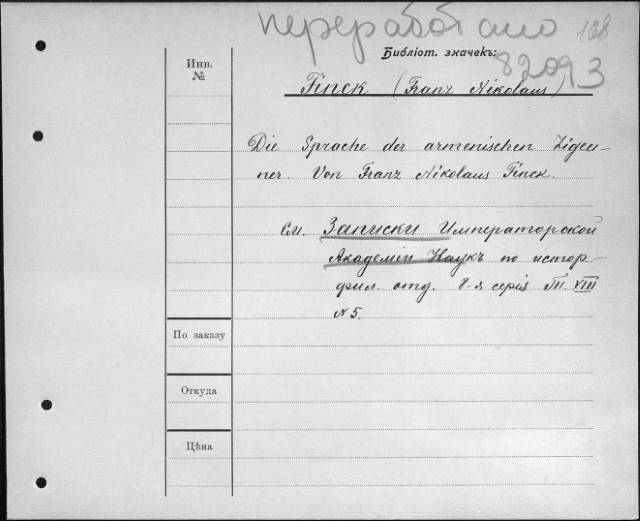 переработано 168
Библіот. значекъ:
82093
Инв.
№
Finck (Franz Nikolaus)
Die Sprache der armenischen Zigeu-
ner. Von Franz Nikolaus Finck.
См. Записки Императорской
Академіи Наукъ по истор.-
фил. отд. 8-я серія Т. VIII
N 5.
По заказу
Откуда
Цѣна